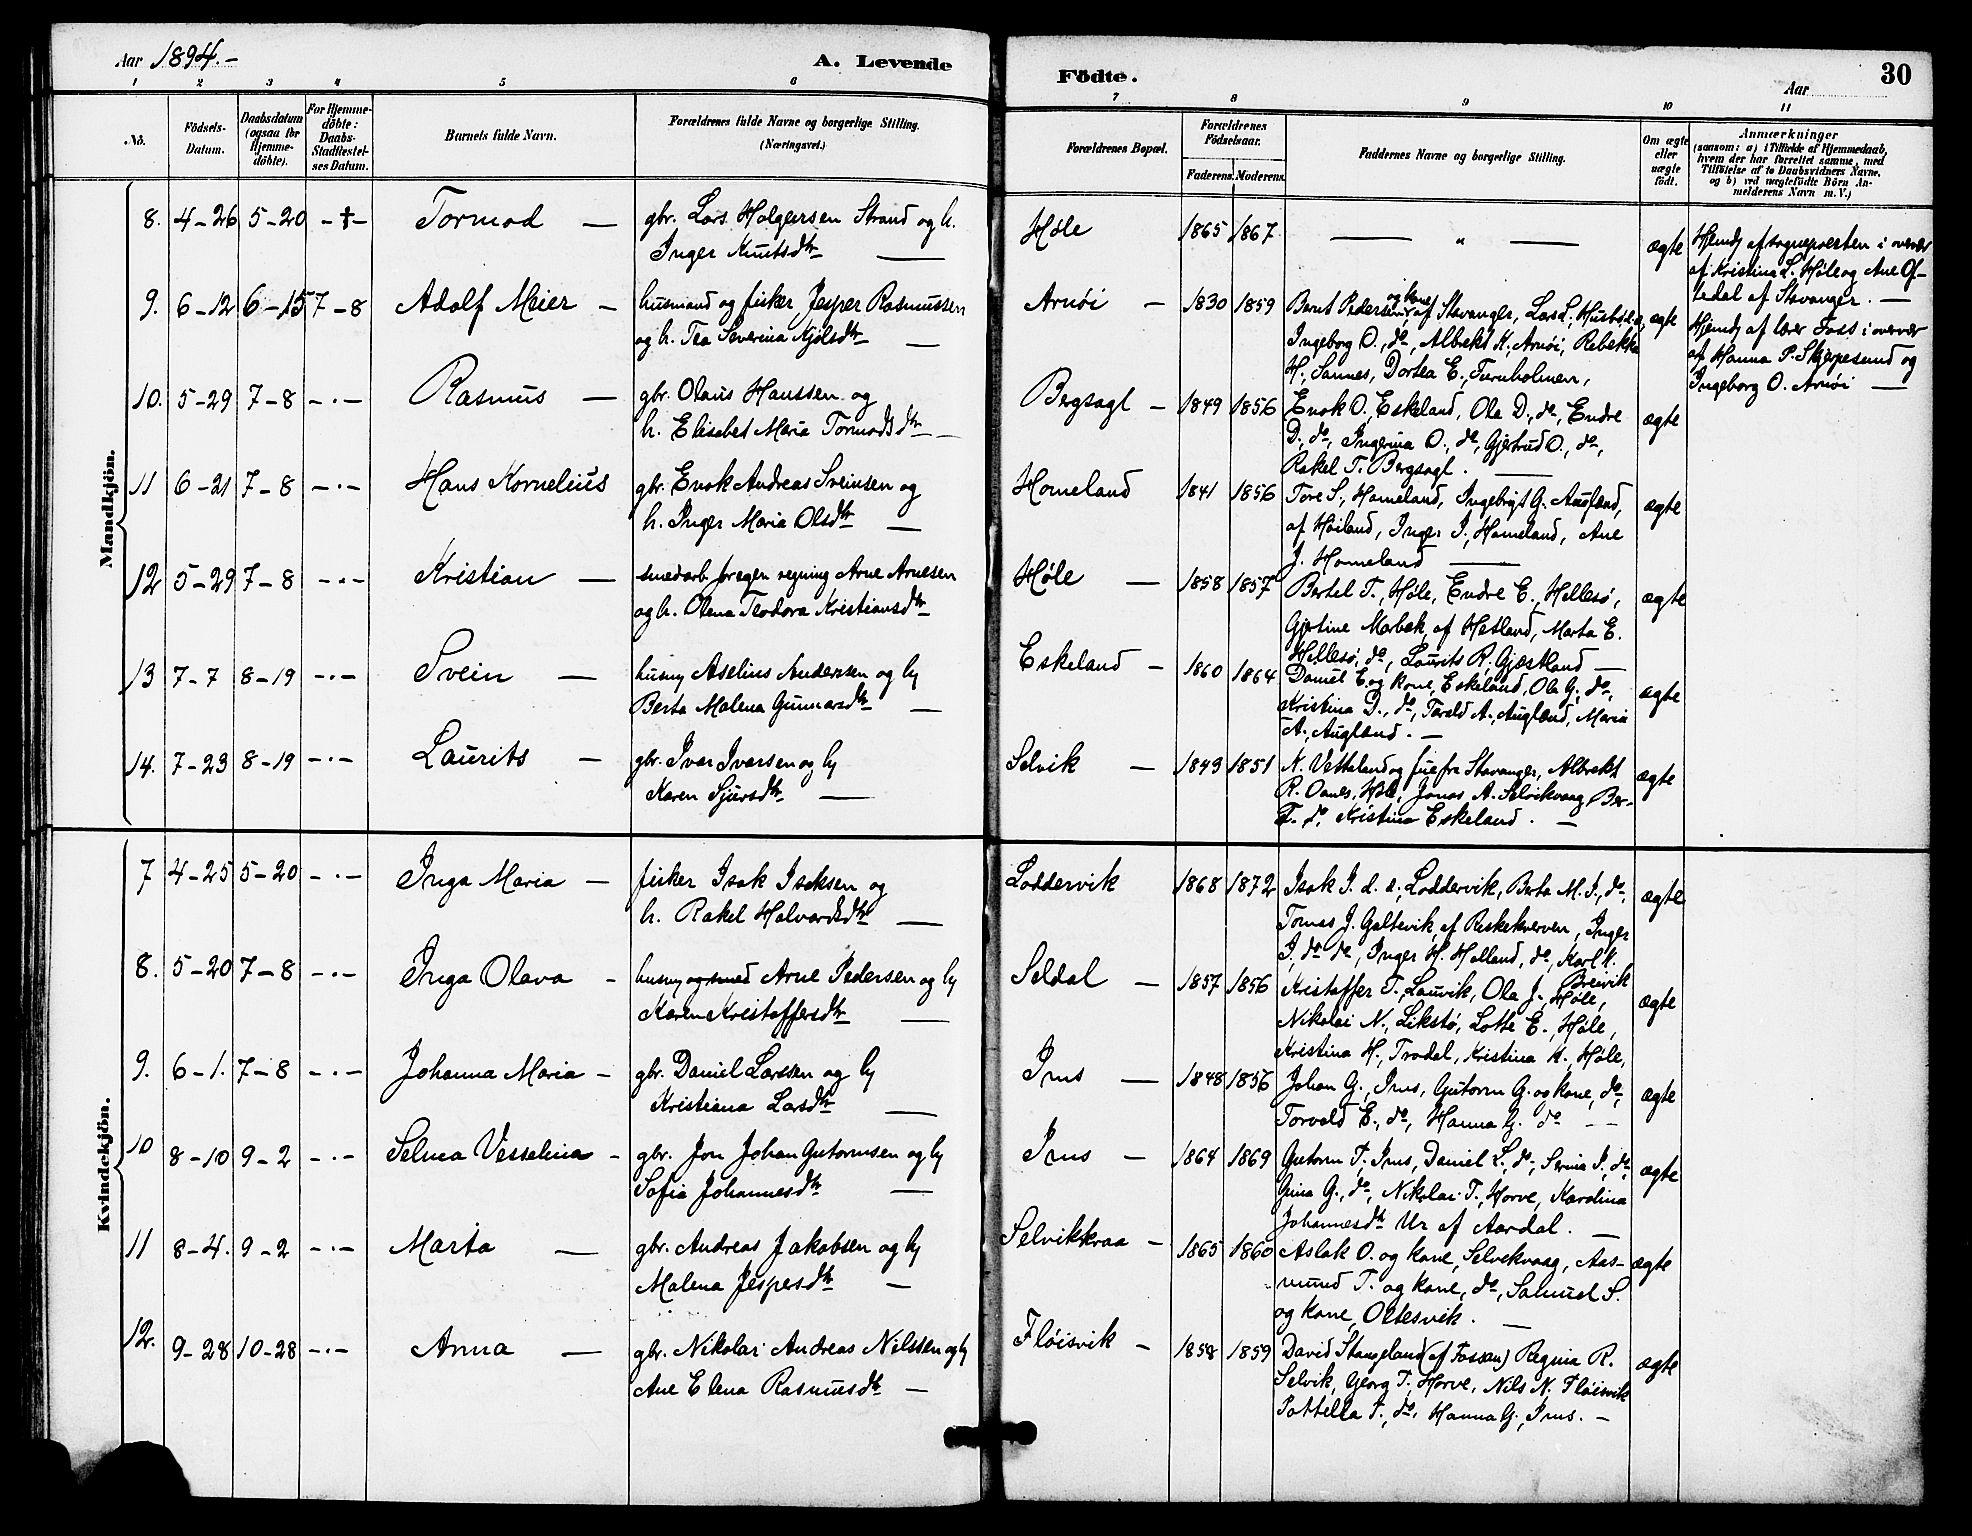 Aar 1894.-
A. Levende
Födte.
Aar
30
1 2 3 4 5 6 7 8 9 10 11
No.
Födsels-Datum.
Daabsdatum (ogsaa for Hjemme-döbte).
For Hjemme-döbte: Daabs-Stadfæstel-ses Datum.
Barnets fulde Navn.
Forældrenes fulde Navne og borgerlige Stilling.
(Næringsvei.)
Forældrenes Bopæl.
Forældrenes Födselsaar.
Faderens. Moderens.
Faddernes Navne og borgerlige Stilling.
Om ægte eller uægte födt.
Anmærkninger
(saasom: a) i Tilfælde af Hjemmedaab,
hvem der har forrettet samme, med
Tilföielse af to Daabsvidners Navne,
og b) ved uægtefödte Börn An-
melderens Navn m. V.)
Mandkjön.
8. 4-26 5-20 -†- Tormod — gbr. Lars Holgersen Strand og h.
Inger Knutsdtr —
Høle 1865 1867 — " — ægte
Hjemdj af sognepresten i overvær
af Kristina L. Høle og Ane Of-
tedal af Stavanger. —
9. 6-12 6-15 7-8 Adolf Meier — husmand og fisker Jesper Rasmussen
og h. Tea Severina Kjølsdtr —
Arnøi — 1830 1859 Bernt Pedersen og kone af Stavanger, Lars L.,
Ingeborg O., do, Albrekt K. Arnøi, Rebekka
H., Sannes, Dortea E., Turnholmen,
ægte
Hjemdj af lærer Foss i overvær
af Hanna P. Skjørpesund og
Ingeborg O. Arnøi —
10. 5-29 7-8 -·- Rasmus — gbr. Olaus Hanssen og
h. Elisabet Maria Tormodsdtr —
Bergsagl — 1849 1856 Enok O., Eskeland, Ola D., do, Endre
D., do, Ingerina O., do, Gjertrud O., do,
Rakel T. Bergsagl. —
ægte
11 6-21 7-8 -·- Hans Kornelius gbr. Enok Andreas Sveinsen og
h. Inger Maria Olsdtr —
Homeland 1841 1856 Tore S., Homeland, Ingebrigt G. Ausland,
af Høiland, Inger I., Homeland, Ane
J. Homeland —
ægte
12 5-29 7-8 -·- Kristian — smedarb. for egen regning Arne Arnesen
og h. Olena Teodora Kristiansdtr
Høle — 1858 1857 Bertel T., Høle, Endre E., Hellesø,
Gjertine Marbæk, af Hetland, Marta E.
Hellesø, do, Laurits R. Gjæstland —
ægte
13 7-7 8-19 -·- Svein — husmj Aselius Anderssen og hj
Berta Malena Gunnarsdtr —
Eskeland — 1860 1864 Daniel E. og kone, Eskeland, Ola G., do,
Kristina D., do, Tarald A., Augland, Maria
A., Augland. —
ægte
14. 7-23 8-19 -·- Laurits — gbr. Ivar Ivarsen og hj
Karen Sjursdtr —
Selvik — 1849 1851 N. Vetteland og frue fra Stavanger, Albrekt
R. Oanes, Høle, Jonas A. Selvikvaag Ber-
T. do, Kristina Eskeland. —
ægte
Kvindekjön.
7 4-25 5-20 -·- Inga Maria — fisker Isak Isaksen og
h. Rakel Halvardsdtr —
Loddervik 1868 1872 Isak I. d. e., Loddervik, Berta M. I., do.
Tomas J. Galtevik, af Riskekverven, Inger
I., do do, Inger H. Helland, do, Karl K.
Breivik
ægte
8. 5-20 7-8 -·- Inga Olava - husmj og smed Arne Pedersen og hj
Karen Kristoffersdtr —
Seldal — 1857 1856 Kristoffer T., Lauvik, Ola J., Høle,
Nikolai N., Likstø, Lotte E., Høle,
Kristina H., Trodal, Kristina K., Høle,
ægte
9. 6-1. 7-8 -·- Johanna Maria - gbr. Daniel Larssen og hj
Kristiana Larsdtr —
Ims — 1848 1856 Johan G., Ims, Gutorm G. og kone, do,
Torvald E., do, Hanna G. do - -
ægte
10 8-10 9-2 -·- Selma Vesselina - gbr. Jon Johan Gutormsen og hj
Sofia Johannesdtr —
Ims — 1864 1869 Gutorm T., Ims, Daniel L., do, Serina I., do,
Gina G., do, Nikolai T., Horve, Karolina
Johannesdtr Ur af Aardal. —
ægte
11 8-4. 9-2 -·- Marta — gbr. Andreas Jakobsen og hj
Malena Jespersdtr —
Selvikkraa — 1865 1860 Aslak O. og kone, Selvekvaag, Aas-
mund T. og kone, do, Samuel S.
og kone, Oltesvik. —
ægte
12. 9-28 10-28 -·- Anna — gbr. Nikolai Andreas Nilssen og hj
Ane Elena Rasmusdtr —
Fløisvik — 1858 1859 David Stangeland (af Fossan) Regina R.
Selvik, Georg T., Horve, Nils N. Fløisvik
Pottella T., do, Hanna G., Ims. —
ægte